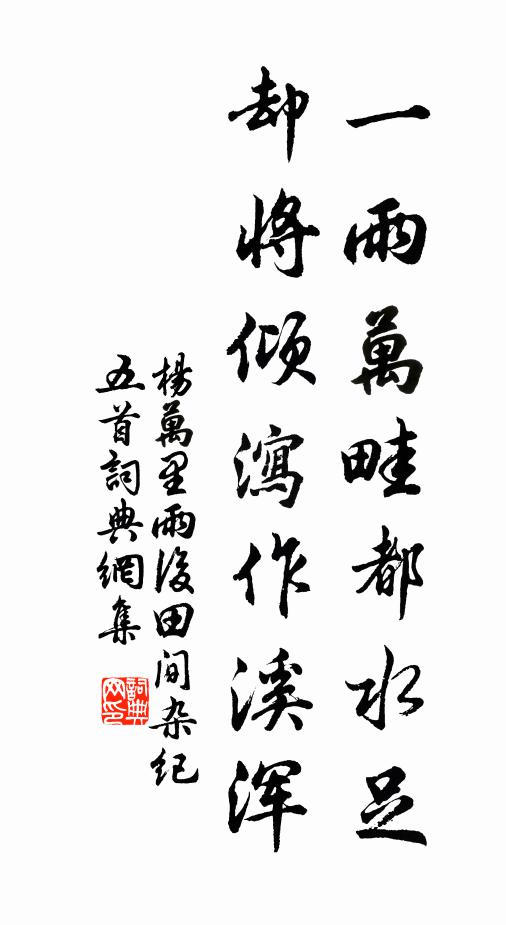 一雨萬畦都水足
却將傾瀉作溪浑
楊萬里雨後田间杂纪
五首詞典網集
詞典
网印